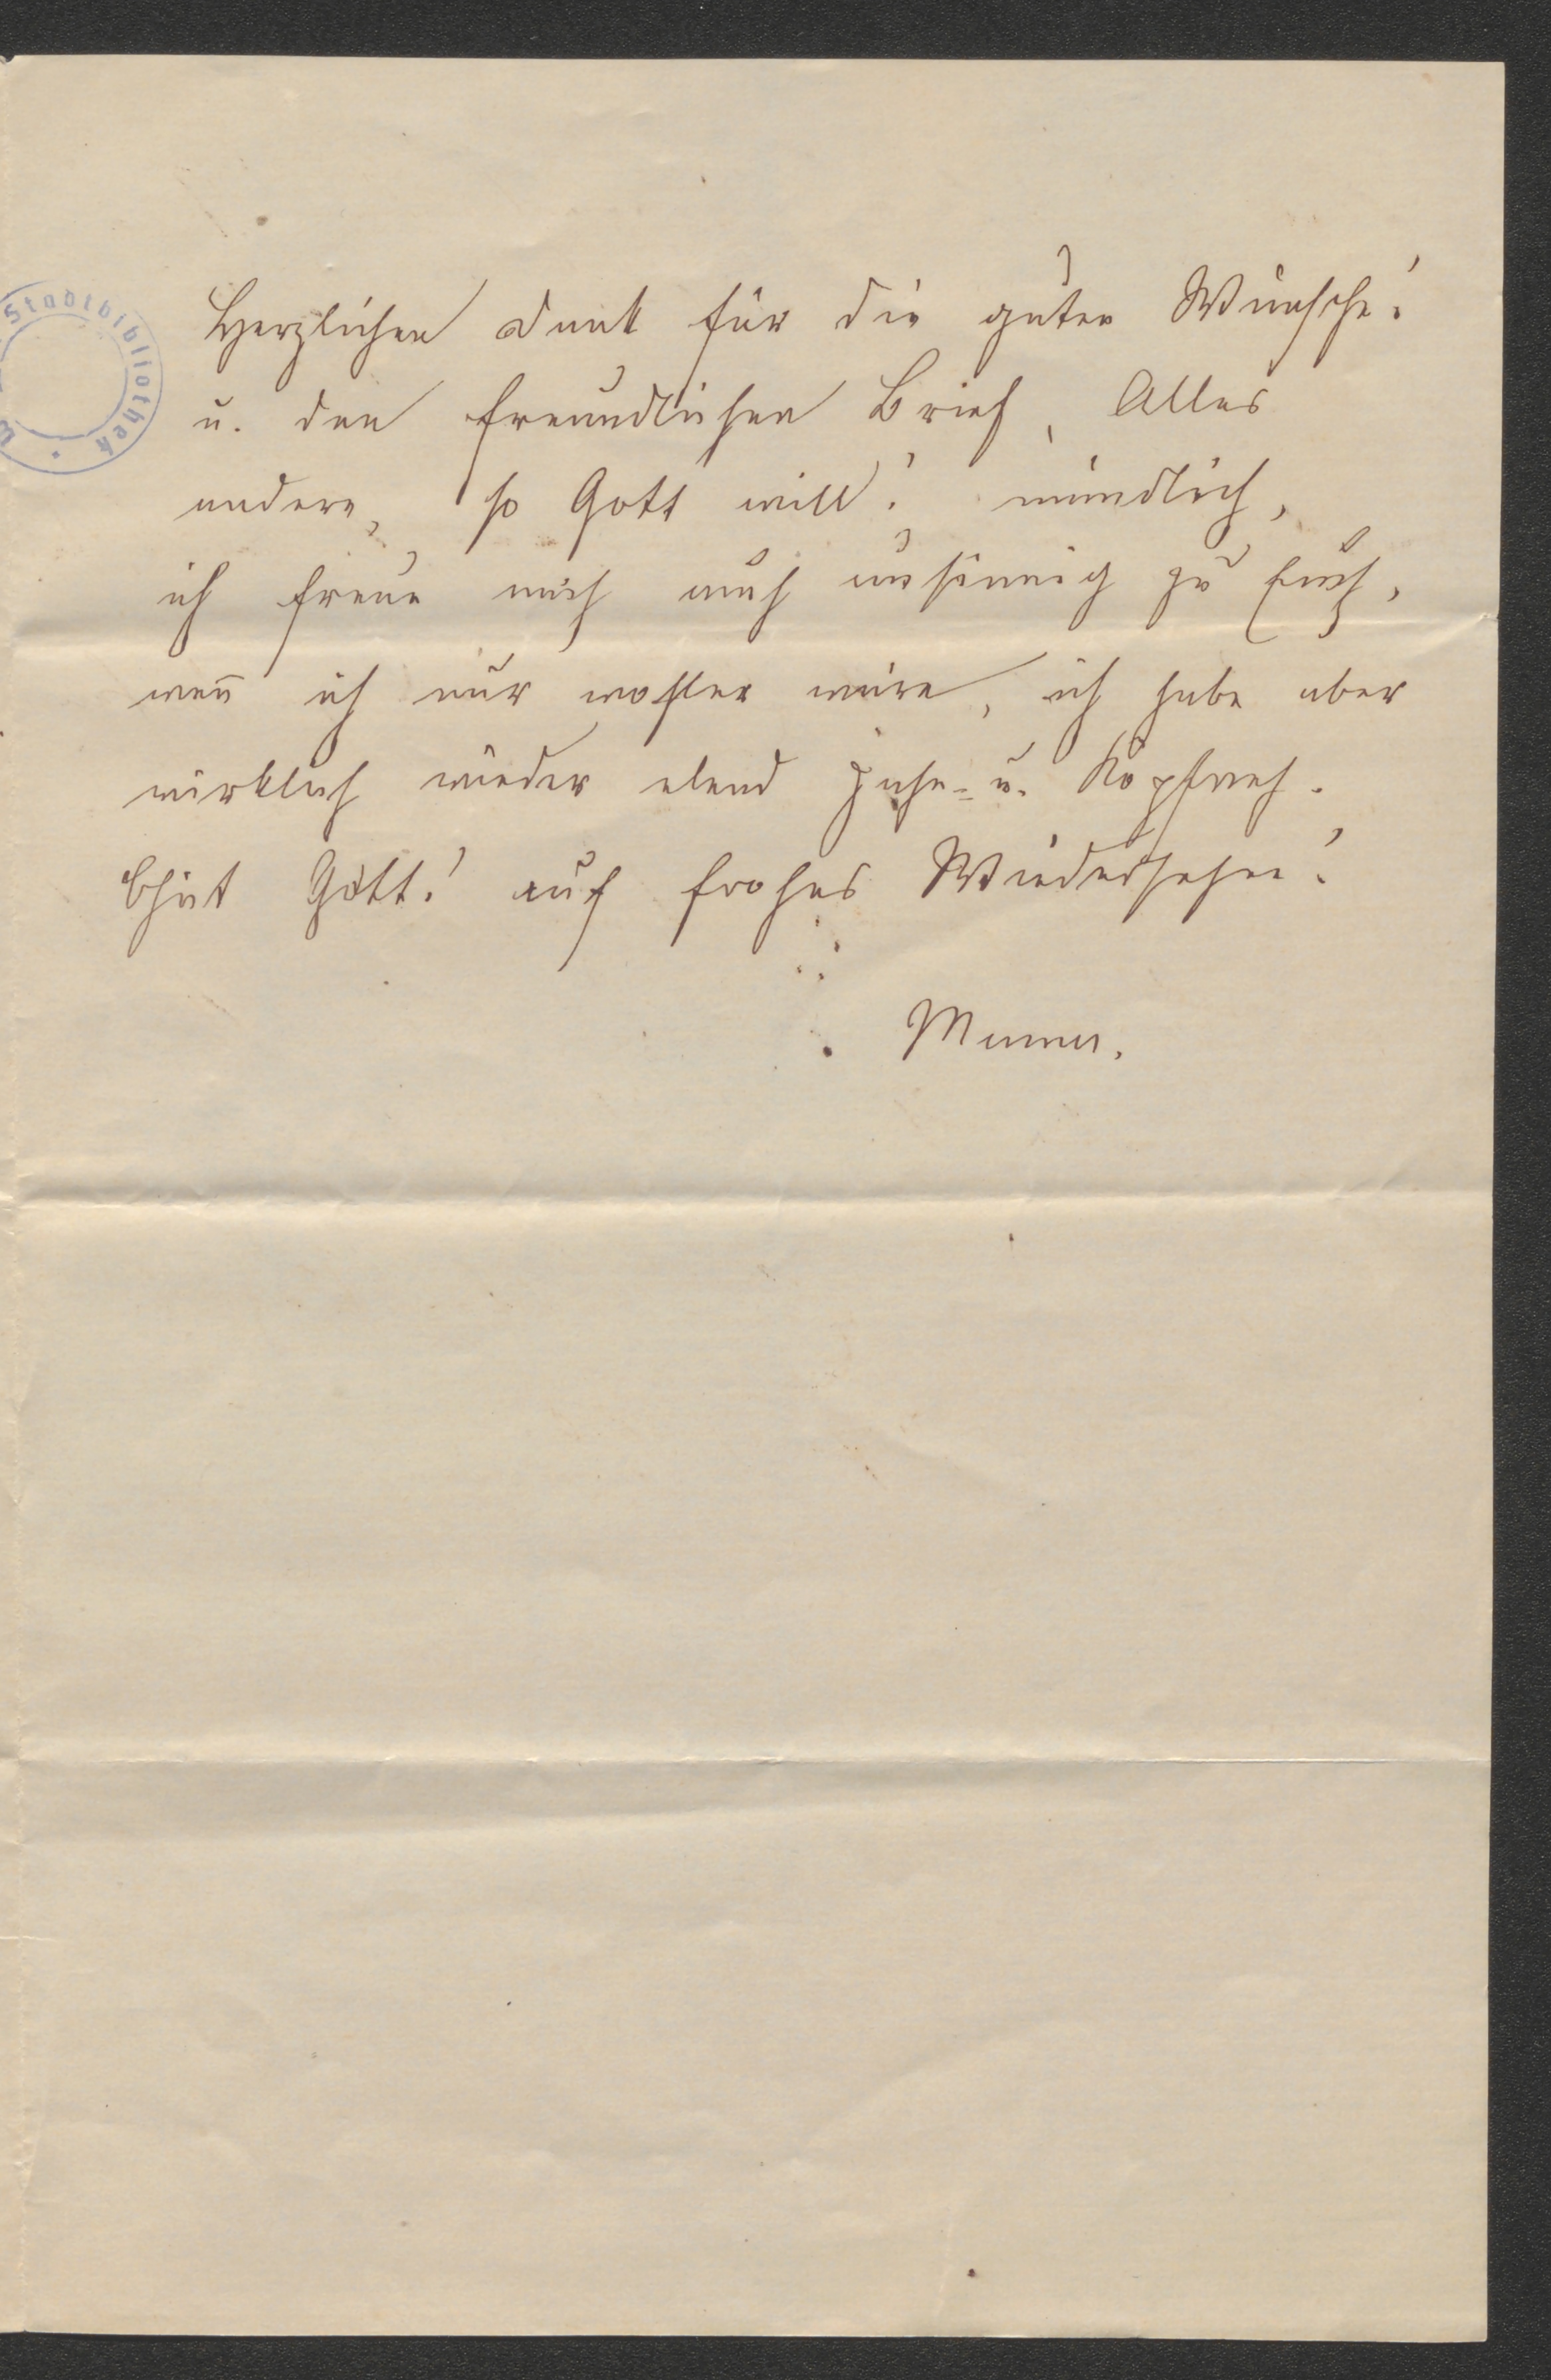 Stadtbibliothek
Herzlichen Dank für die guten Wünsche!
u. den freundlichen Brief, Alles
andere, so Gott will! mündlich,
ich freue mich auch unsinnig zu Euch,
weñ ich nur wohler wäre, ich habe aber
wirklich wieder elend Zahn- u. Kopfweh.
Bhüt Gott! auf frohes Wiedersehen!
Mama.